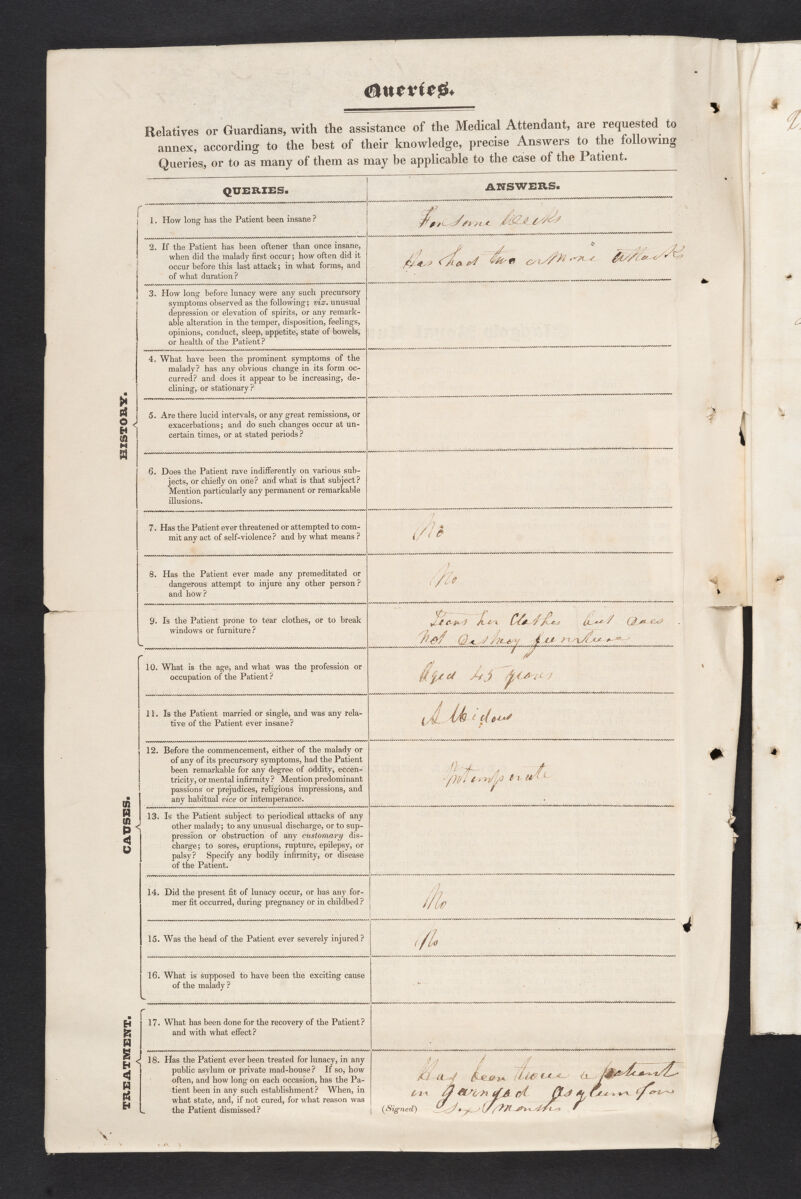 Queries.
Relatives or Guardians, with the assistance of the Medical Attendant, are requested to
annex, according to the best of their knowledge, precise Answers to the following
Queries, or to as many of them as may be applicable to the case of the Patient.
QUERIES.
ANSWERS.
HISTORY.
1. How long has the Patient been insane?
For some Weeks
2. If the Patient has been oftener than once insane,
when did the malady first occur; how often did it
occur before this last attack; in what forms, and
of what duration?
Has had two or More attacks
3. How long before lunacy were any such precursory
symptoms observed as the following; viz. unusual
depression or elevation of spirits, or any remark-
able alteration in the temper, disposition, feelings,
opinions, conduct, sleep, appetite, state of bowels,
or health of the Patient?
4. What have been the prominent symptoms of the
malady? has any obvious change in its form oc-
curred? and does it appear to be increasing, de-
clining, or stationary?
5. Are there lucid intervals, or any great remissions, or
exacerbations; and do such changes occur at un-
certain times, or at stated periods?
6. Does the Patient rave indifferently on various sub-
jects, or chiefly on one? and what is that subject?
Mention particularly any permanent or remarkable
illusions.
7. Has the Patient ever threatened or attempted to com-
mit any act of self-violence? and by what means?
No
8. Has the Patient ever made any premeditated or
dangerous attempt to injure any other person?
and how?
No
9. Is the Patient prone to tear clothes, or to break
windows or furniture?
Tears her Clothes but does
Not destroy furniture
CAUSES.
10. What is the age, and what was the profession or
occupation of the Patient?
Aged 45 years
11. Is the Patient married or single, and was any rela-
tive of the Patient ever insane?
A Widow
12. Before the commencement, either of the malady or
of any of its precursory symptoms, had the Patient
been remarkable for any degree of oddity, eccen-
tricity, or mental infirmity? Mention predominant
passions or prejudices, religious impressions, and
any habitual vice or intemperance.
13. Is the Patient subject to periodical attacks of any
other malady; to any unusual discharge, or to sup-
pression or obstruction of any customary dis-
charge; to sores, eruptions, rupture, epilepsy, or
palsy? Specify any bodily infirmity, or disease
of the Patient.
14. Did the present fit of lunacy occur, or has any for-
mer fit occurred, during pregnancy or in childbed?
No
15. Was the head of the Patient ever severely injured?
No
16. What is supposed to have been the exciting cause
of the malady?
TREATMENT.
17. What has been done for the recovery of the Patient?
and with what effect?
18. Has the Patient ever been treated for lunacy, in any
public asylum or private mad-house? If so, how
often, and how long on each occasion, has the Pa-
tient been in any such establishment? When, in
what state, and, if not cured, for what reason was
the Patient dismissed?
Has been twice a patient
in Garngad Asylum for
(Signed) Six Months